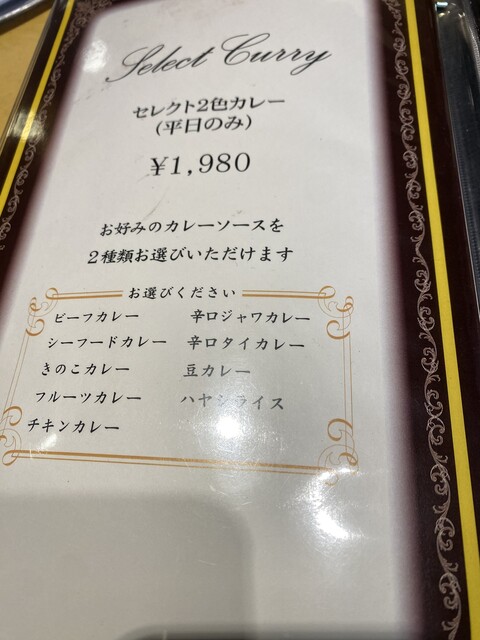 Select Curry
セレクト2色カレー
(平日のみ)
¥1,980
お好みのカレーソースを
2種類お選びいただけます
お選びください
ビーフカレー
シーフードカレー
きのこカレー
フルーツカレー
チキンカレー
辛口ジャワカレー
辛口タイカレー
豆カレー
ハヤシライス